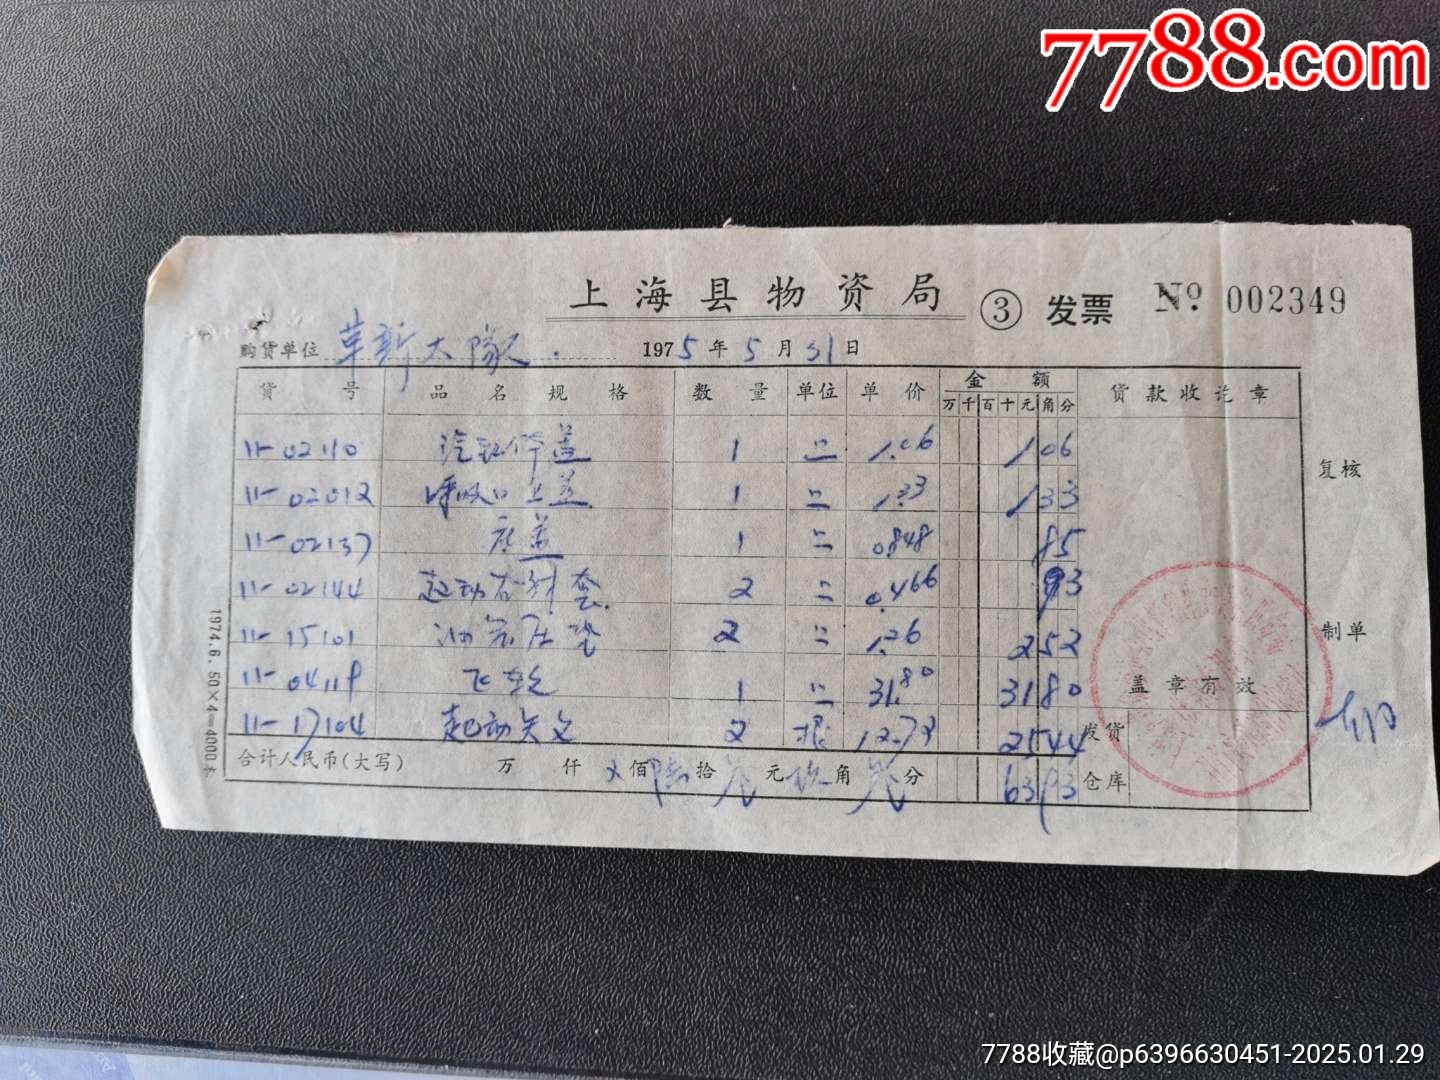 7788.com
上海县物资局 ③ 发票 № 002349
购货单位 革新大队 1975年5月31日
货号 品名规格 数量 单位 单价 金额 货款收讫章
万千百十元角分
11-02110 盖 1 〃 1.06 106
复核
11-02012 呼吸口上盖 1 〃 1.33 133
11-02137 底盖 1 〃 0.848 85
11-02144 起动 套 2 〃 0.466 93
11-15101 2 〃 1.26 252
制单
11-04119 飞轮 1 〃 31.80 3180
盖章有效
11-17104 起动 2 根 12.72 2544
发货
合计人民币(大写) 万 仟 佰 陆拾 元 玖角 分 6393
仓库
1974.6.50×4=4000本
7788收藏@p6396630451-2025.01.29